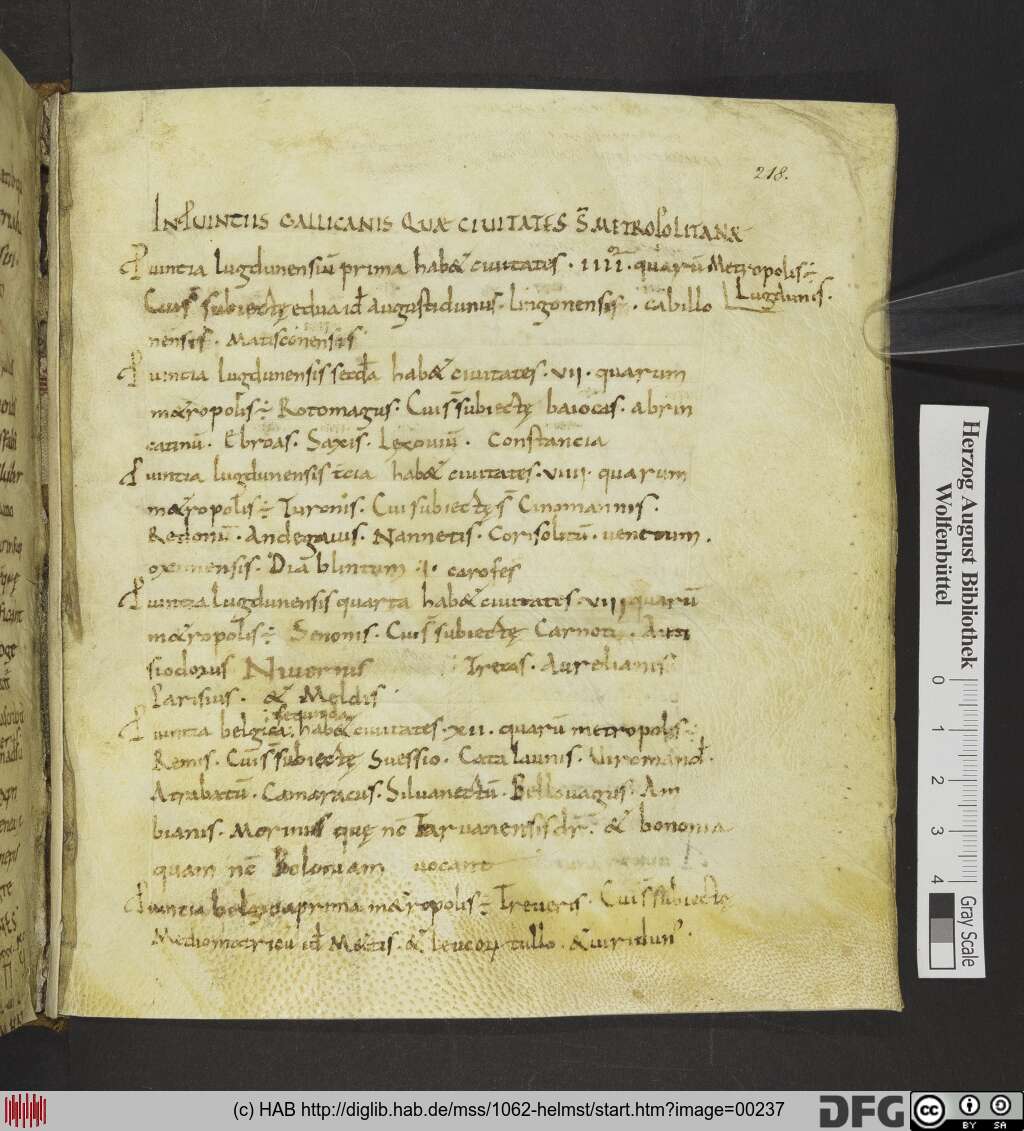 218.
IN PUINTIIS GALLICANIS QUAE CIUITATES S̄ METROPOLITANAE
Puintia lugdunensiū prima hab& ciuitates · IIII · quarū Metropolis ÷
Cuis subiectę edua id augustidunus · lingonensis · cabillo Lugdunis ·
nensis · Matisconensis
Puintia lugdunensis secda hab& ciuitates · VII · quarum
m&ropolis ÷ Rotomagus · Cuis subiectę baiocas · abrin
catinū · Ebroas · Saxis · Lexouiū · Constancia
Puintia lugdunensis tcia hab& ciuitates · VIIII · quarum
m&ropolis ÷ Turonis · Cui subiectę s̄ Cinomannis ·
Redonū · Andegauis · Nannetis · Corisolitū · uenetum ·
oximensis · Dia blintum · carofes
Puintia lugdunensis quarta hab& ciuitates · VIII quarū
m&ropolis ÷ Senonis · Cuis subiectę Carnotū ·
siodorus Niuernis Trecas · Aurelianis
Parisius · & Meldis ·
Puintia belgica secunda hab& ciuitates · XII · quarū metropolis ÷
Remis · Cuis subiectę Suessio · Catalaunis · Uiromand ·
Atrabatū · Camaracus · Siluanectū · Bellouagus · Am
bianis · Morinus quę nc̄ Taruanensis dr̄ · & bononia
quam nc̄ Bolonam uocant
Puintia belgica prima m&ropolis ÷ Treueris · Cuis subiectę
Mediomatricū id Mettis · & leucorum tullo · & uiridun ·
Herzog August Bibliothek
Wolfenbüttel
0 1 2 3 4
Gray Scale
(c) HAB http://diglib.hab.de/mss/1062-helmst/start.htm?image=00237
DFG
cc
BY SA